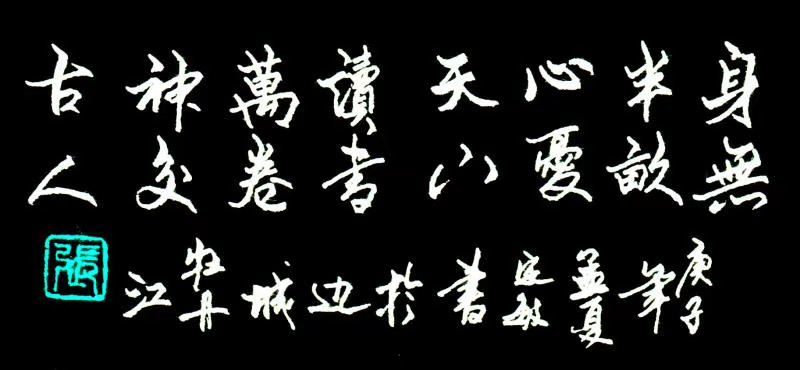 身無
半畝
心憂
天下
讀書
萬卷
神交
古人
庚子
年
孟夏
定敏
書
於
边
城
牡丹
江
張